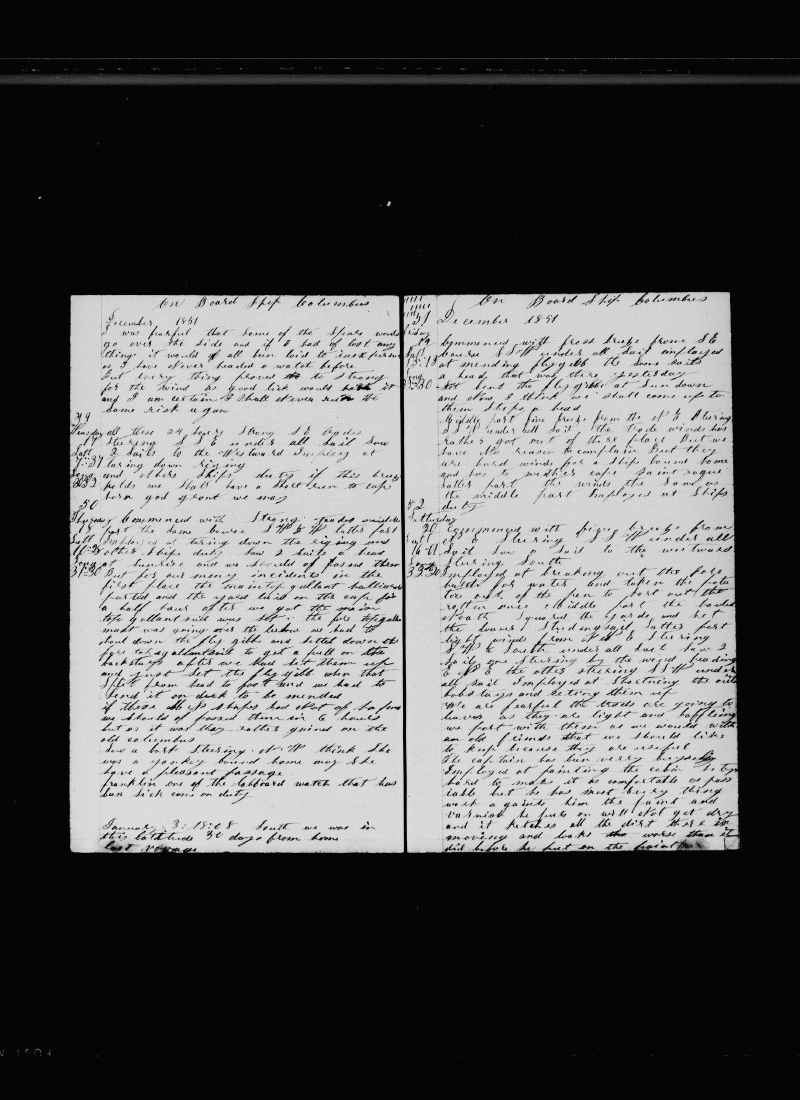 On Board Ship Columbus
December 1851
I was fearful that some of the Spars would
go over the side and if I had of lost any
thing it would of all ben laid to
as I have Never headed a watch before
but every thing proved to strong
for the wind as good luck would have it
and I am certain I shall Never run the
same risk a gan
49
Wensday all these 24 hours Strong S E trades
17 Steering S E under all sail Saw
Latt 2 sails to the Westward Employ at
7:37 taring down riging
Long and others Ships duty if this breeze
holds we shall have a short run to cape
horn god grant we may
50
Thursday Commenced with Strong trades
18 part the same course latter part
Latt employed at taring down the riging and
other Ships duty Saw 2 sails a head
Long at sunrise and we should of passed them
But for our meny incidents in the
first place the maintop gallant halliards
parted and the yard laid on the cap for
a half hour after we got the main
top gallant sail was set the fore top gallant
mast was going over the bow we had to
haul down the flyg gibb and settel down the
fore top gallant sail to get a pull on the
backstays after we had set them up
and just set the flyg gibb when that
split from head to foot and we had to
send it on deck to be mended
if these had Not of hapend
we should of passed them in 6 hours
but as it was they rather gained on the
old columbus
Saw a bark Steering N W think She
was a yankey bound home may She
have a pleasent passage
franklin one of the labboard watch that has
ben sick come on duty
January 3: 1848 South we was in
this latitude 30 days from home
last voyage
On Board Ship Columbus
51 December 1851
Friday
19 Commenced with fresh breeze from S E
Latt Course S S W under all sail employed
at mending flyg gibb the same sails
Long a head that was there yesterday
bent the flyg gibb at sun down
and Now I think we shall come up to
them Ships a head
Middle part fine breeze from the N E Steering
S S W under all sail the trade winds has
rather got out of there place But we
have No reason to complain But they
are hard winds for a ship bound home
and has to weather cape Saint roque
latter part the winds the same as
the middle part Employed at Ships
duty
52
Saturday
20 Commenced with fine breeze from
Latt Steering S S W under all
Sail saw a sail to the westward
Long Steering South
Employed at breaking out the fore
hatch for water and taken the potatoes
out of the pen to sort out the
rotten ones Middle part the
South Squared the yards and set
the lower studingsail latter part
light winds from N E Steering
S W E South under all Sail Saw 2
Sail one Steering by the wind heading
E N E the other steering S S W under
all sail Employed at Shortning the
bobstays and seting them up
We are fearful the trads are going to
leave us as they are light and baffling
we part with them as we would with
an old frind that we should like
to keep because they are useful
The captain has ben verry busy
Employed at painting the cabin he trys
hard to make it as comfortable as poss
iable but he has most every thing
work a gainst him the paint and
varnish he puts on will Not get dry
and it ketches all the dirt there is
moving and looks worse than it
did before he put on the paint